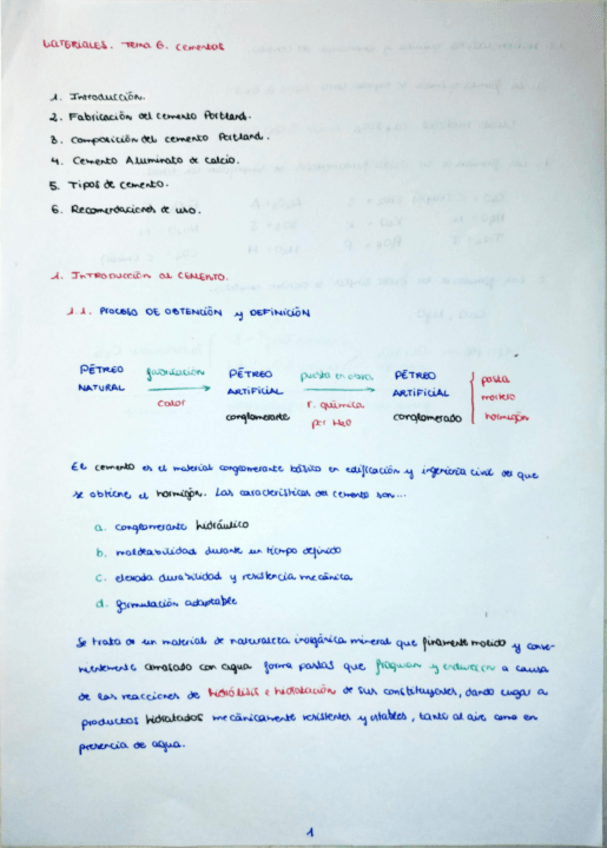 MATERIALES. Tema 6. Cementos
1. Introducción.
2. Fabricación del cemento Portland.
3. Composición del cemento Portland.
4. Cemento Aluminato de calcio.
5. Tipos de cemento.
6. Recomendaciones de uso.
1. INTRODUCCIÓN AL CEMENTO.
1.1. PROCESO DE OBTENCIÓN y DEFINICIÓN
PÉTREO fabricación PÉTREO puesta en obra PÉTREO pasta
NATURAL calor ARTIFICIAL r. química ARTIFICIAL mortero
conglomerante por H2O conglomerado hormigón
El cemento es el material conglomerante básico en edificación y ingeniería civil del que
se obtiene el hormigón. Las características del cemento son...
a. conglomerante hidráulico
b. moldeabilidad durante un tiempo definido
c. elevada durabilidad y resistencia mecánica
d. formulación adaptable
Se trata de un material de naturaleza inorgánica mineral que finamente molido y conve-
nientemente amasado con agua forma pastas que fraguan y endurecen a causa
de las reacciones de hidrólisis e hidratación de sus constituyentes, dando lugar a
productos hidratados mecánicamente resistentes y estables, tanto al aire como en
presencia de agua.
1